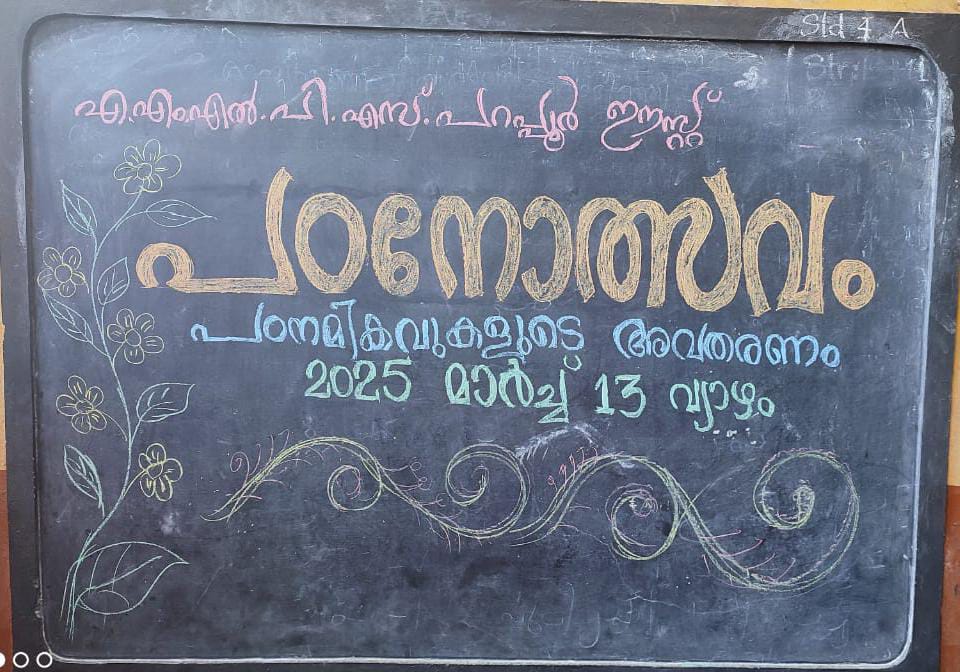 Std 4 A
Str:
എ.എം.എൽ.പി.എസ്.പറപ്പൂർ ഈസ്റ്റ്
പഠനോത്സവം
പഠനമികവുകളുടെ അവതരണം
2025 മാർച്ച് 13 വ്യാഴം